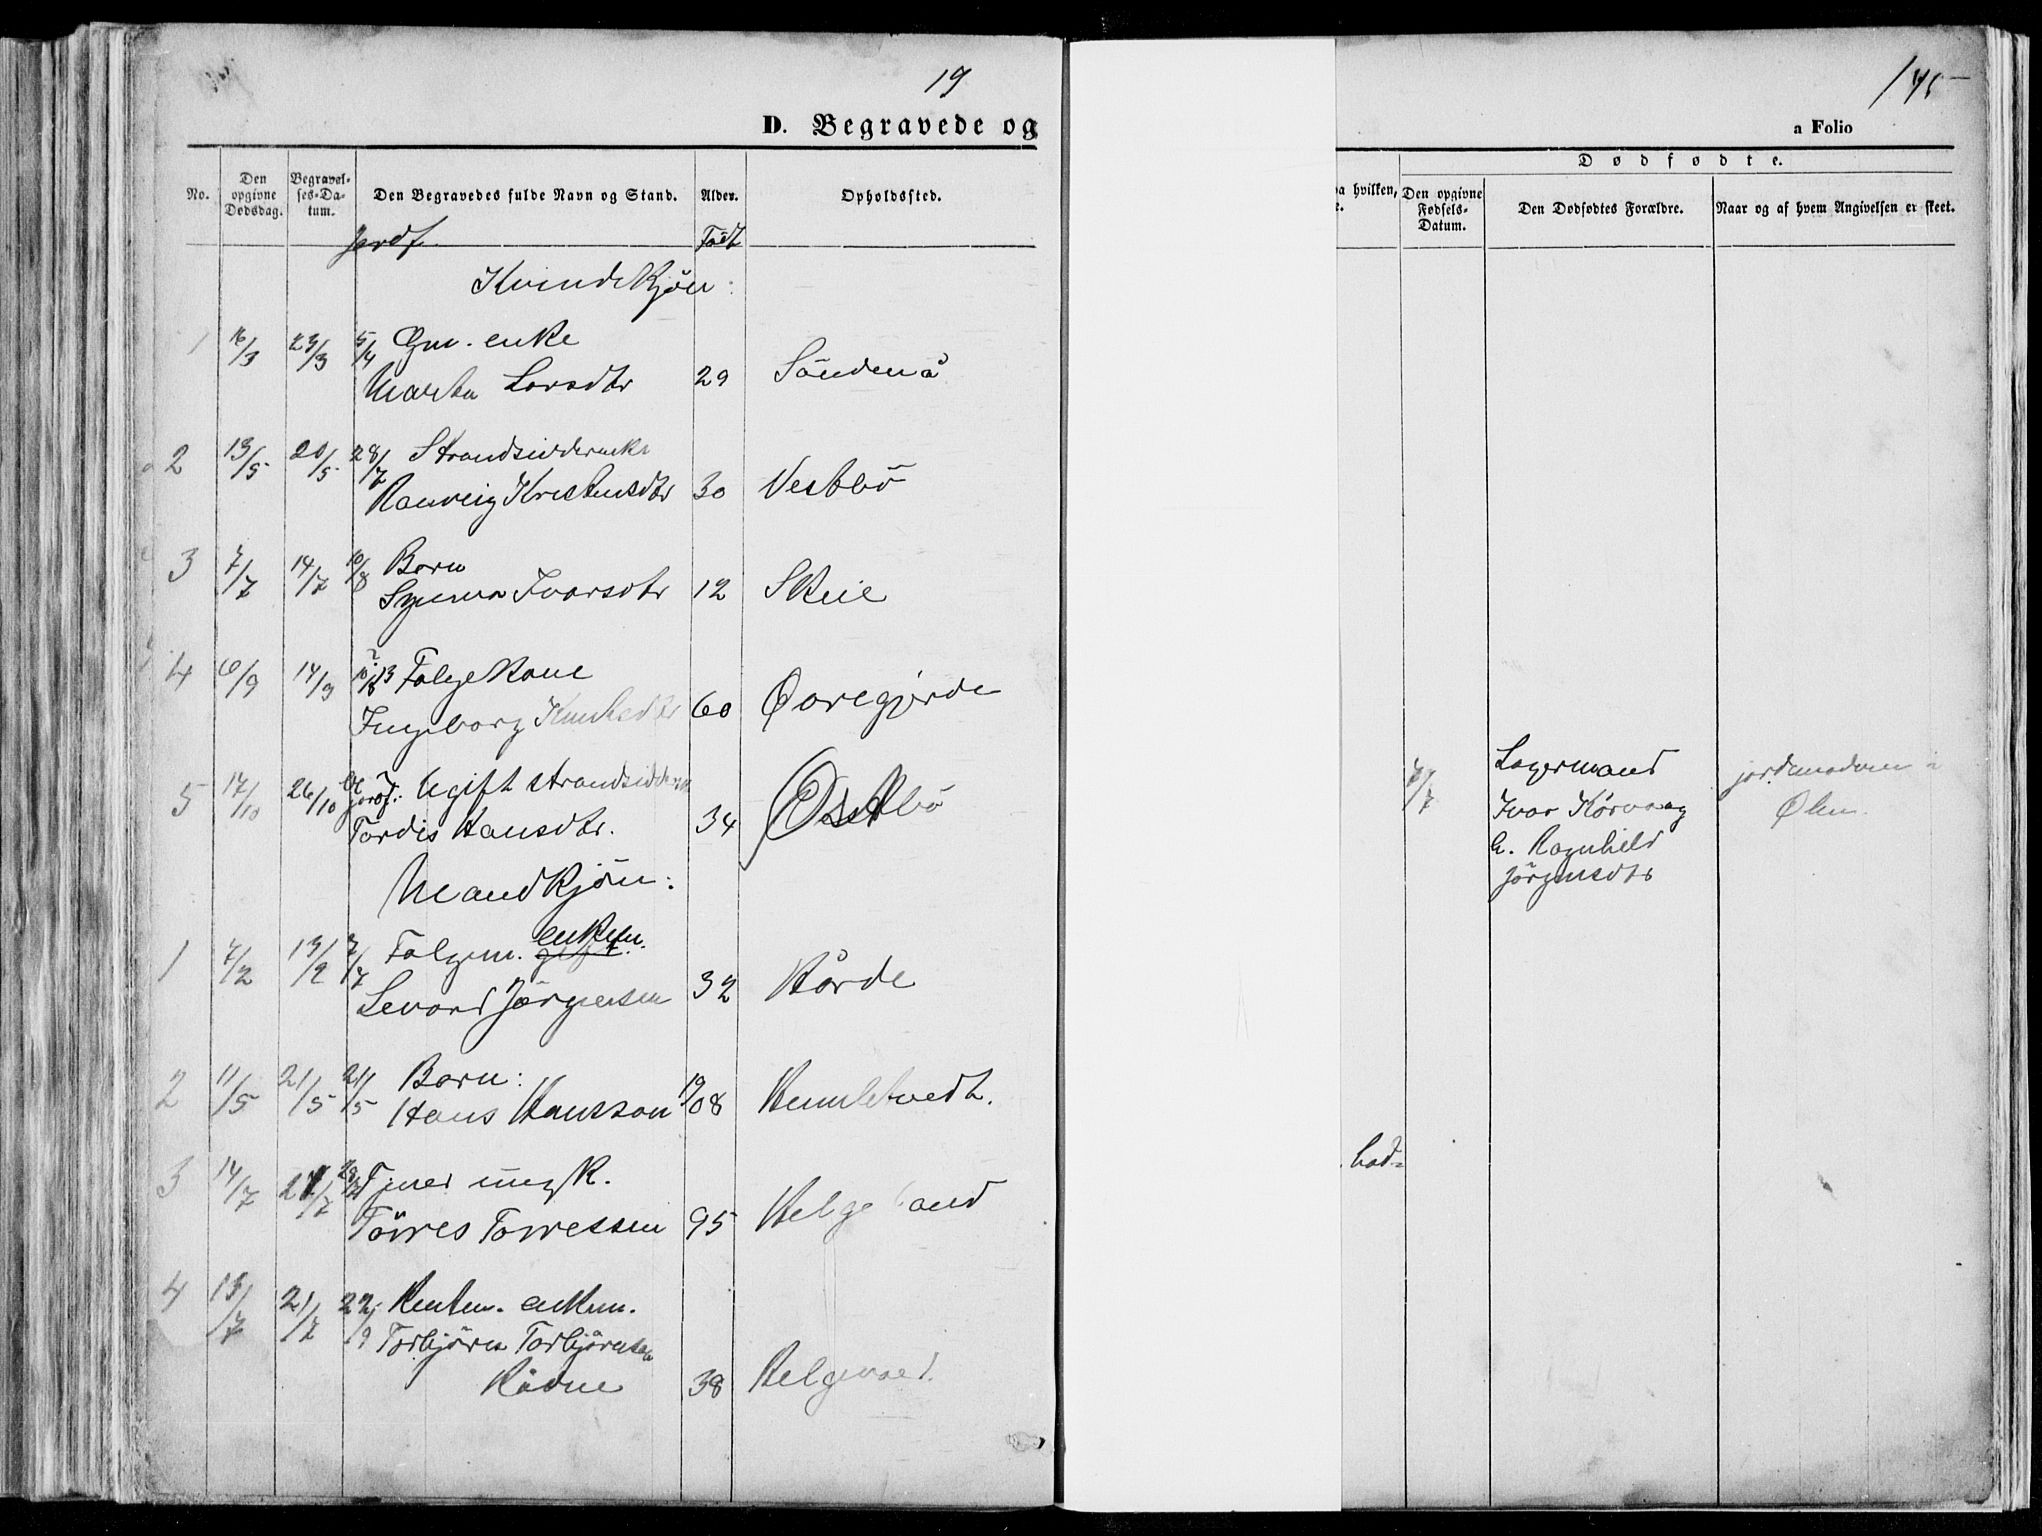 19
D. Begravede og
No.
Den opgivne Dødsdag.
Begravel-ses-Da-tum.
Den Begravedes fulde Navn og Stand.
Alder.
Opholdssted.
Jordf.
Født
Kvindekjøn:
1 16/3 23/3 5/4 Gm. enke
Marta Larsdtr 29 Søndenå
2 13/5 20/5 28/7 Strandsidderenke
Ranveig Kristensdtr 30 Vestbø
3 7/7 14/7 10/8 Barn
Synnva Ivarsdtr 12 Skeie
4 6/9 14/9 Folgekone
Ingeborg Knutsdtr 60 Øvregjerde
5 17/10 26/10 jordf: Ugift strandsidder
Tordis Hansdtr. 34 Østbø
Mandkjøn:
1 7/2 13/2 7/7 Folgem. enkem.
Sevard Jørgensen 32 Hørde
2 11/5 21/5 21/5 Barn:
Hans Hansson 19/08 Humletvedt.
3 14/7 21/7 Tjener ungk.
Tørres Torressen 95 Helgeland
4 13/7 21/7 22/9 Rentem. enkem.
Torbjørn Torbjørnsen
Rådne 38 Helgevold.
145
a Folio
Dødfødte.
paa hvilken,
Den opgivne Fødsels-Datum.
Den Dødfødtes Forældre.
Naar og af hvem Angivelsen er skeet.
7/7 Lagermand
Ivar Kørvaag
h. Ragnhild
Jørgensdtr
jordmoderen i
Ølen.
bad=